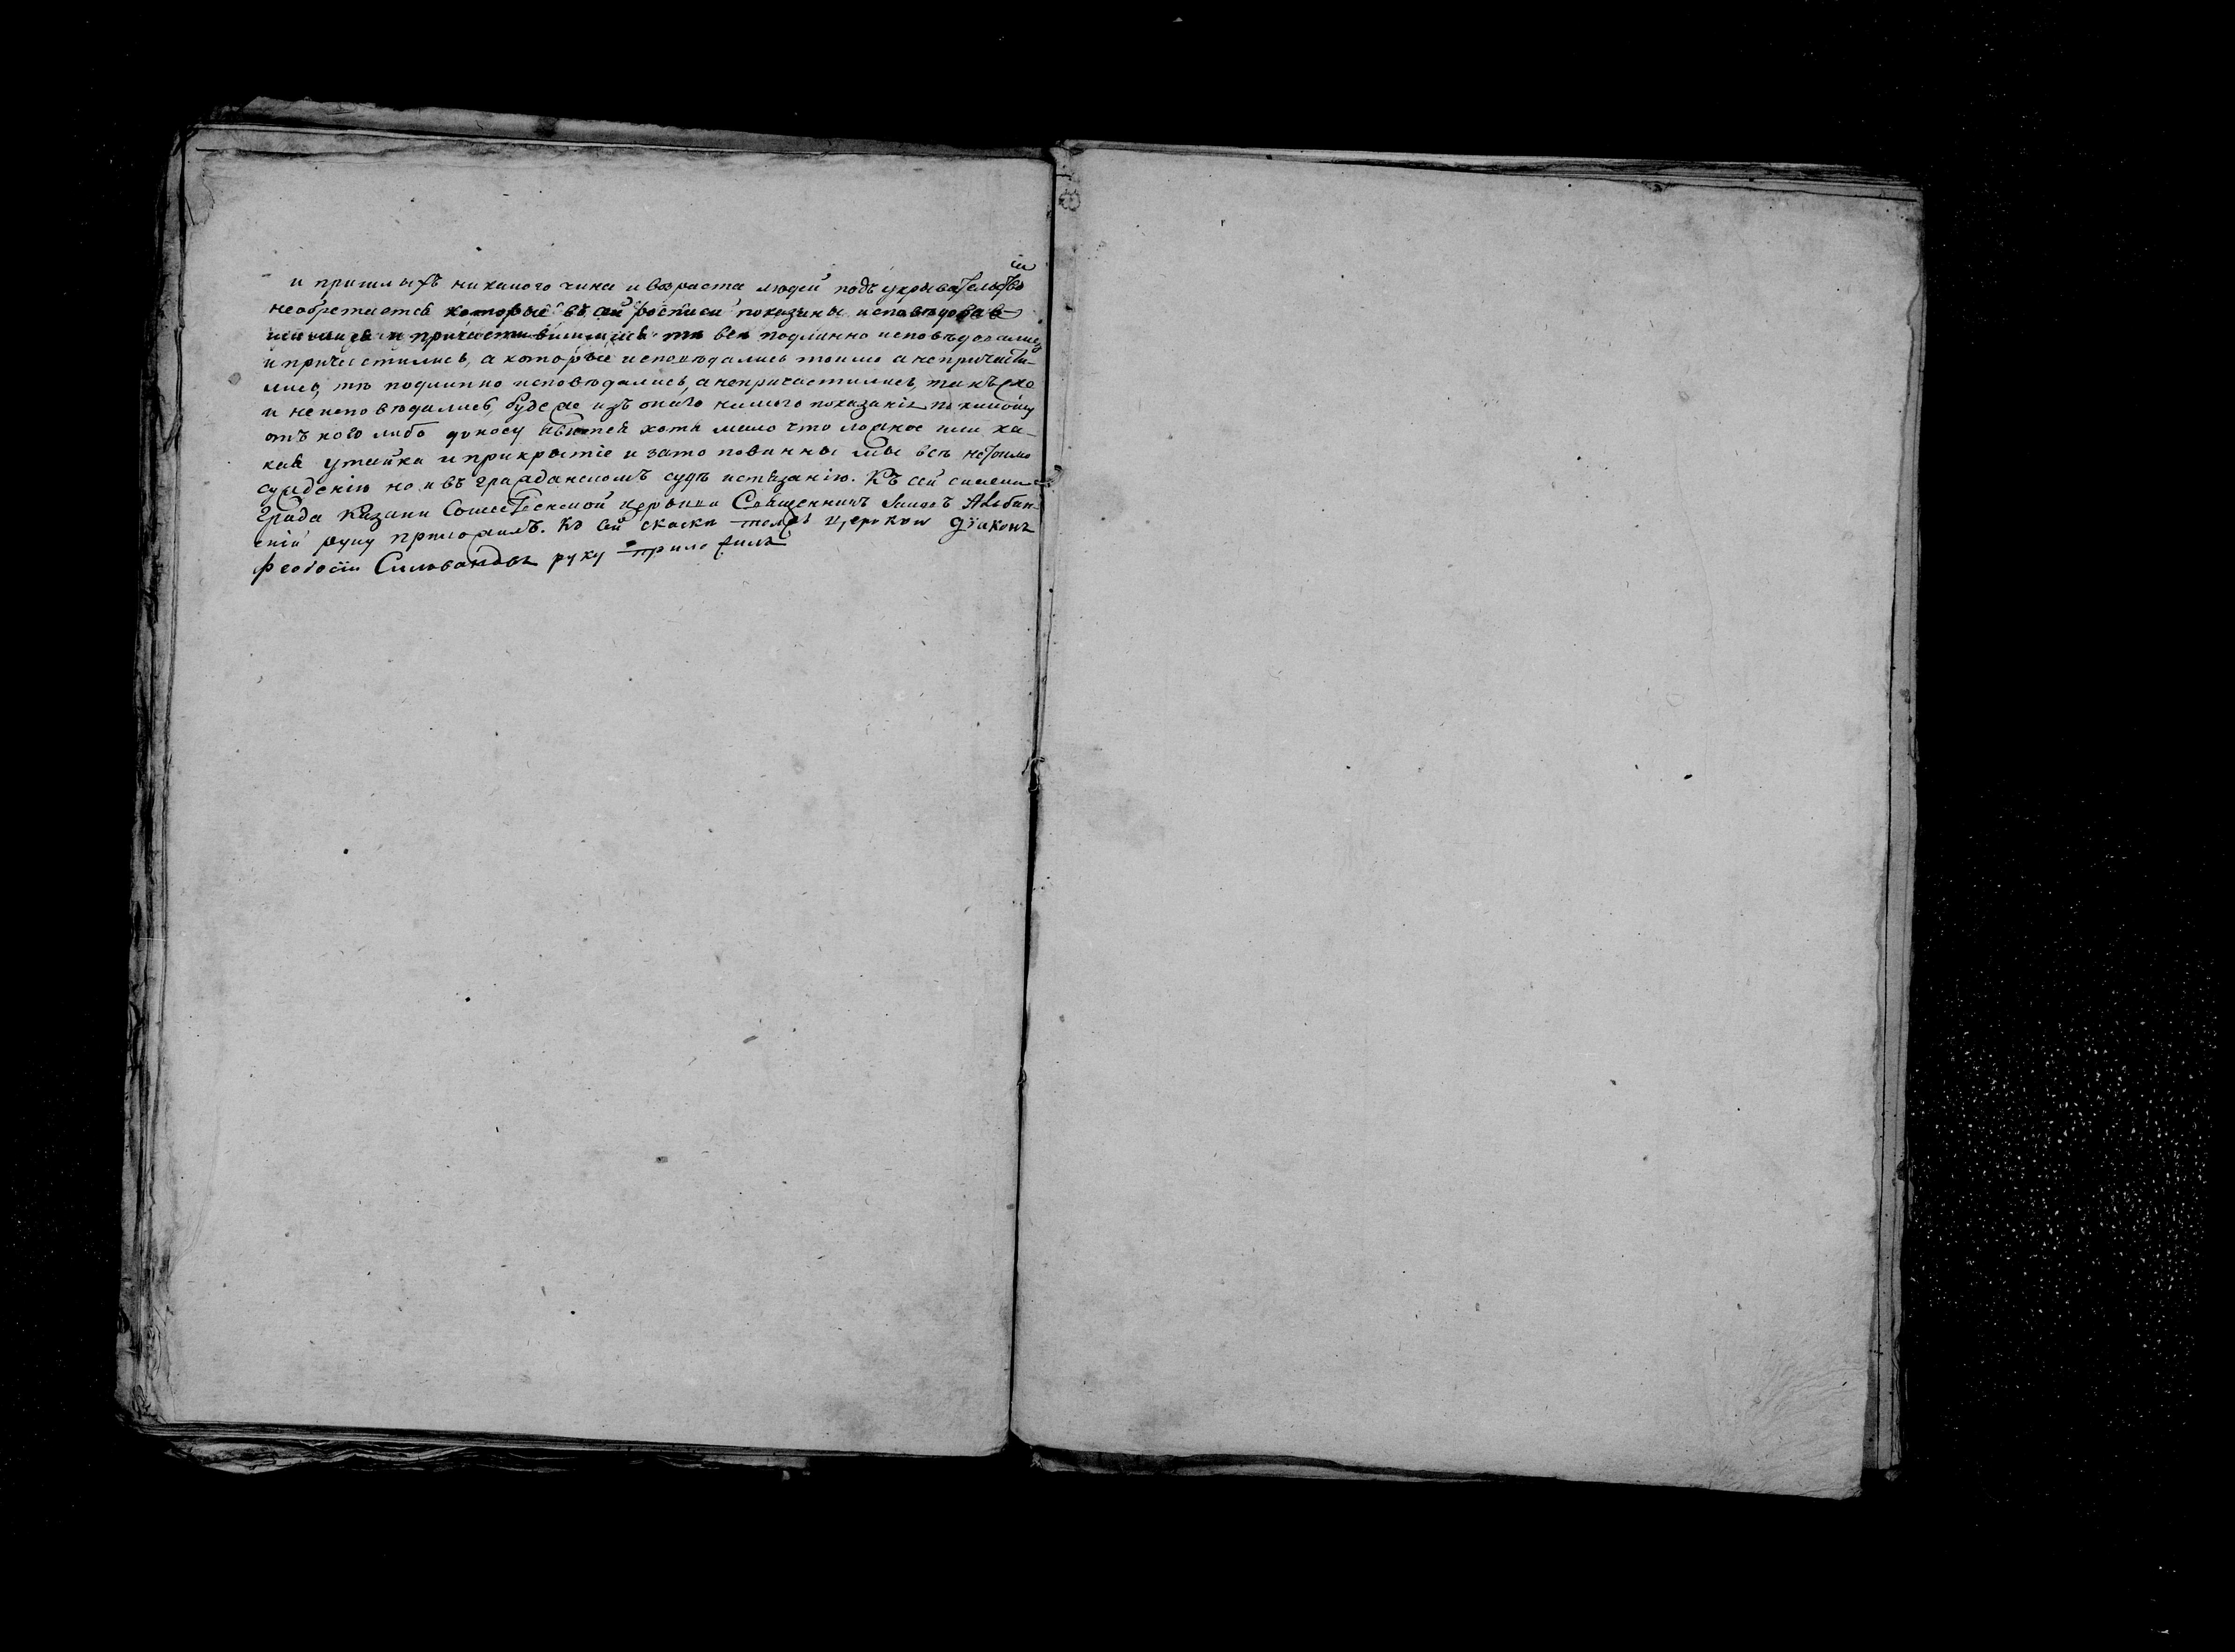 и пришлыхъ никакого чина и возраста людей подъ укрывательствомъ
необретается которые въ сей росписи показаны исповѣдовав
шимися и причастившимися тѣ всѣ подлинно исповѣдовались
и причастились, а которые исповѣдались токмо а непричасти-
лись, тѣ подлинно исповѣдались, а непричастились, такъ же
и не исповѣдались, буде же изъ онаго нашего показанія по какому
отъ кого либо доносу явится хотя мало что ложное или ка-
кая утайка и прикрытіе и зато повинны мы всѣ нетокмо
суждению но и въ гражданскомъ судѣ истязанію. Къ сей
града Казани Сошественской церькви Священникъ
скій руку приложилъ. Ко сей скаски тояже церкви дїаконъ
Феодосїи руку приложилъ